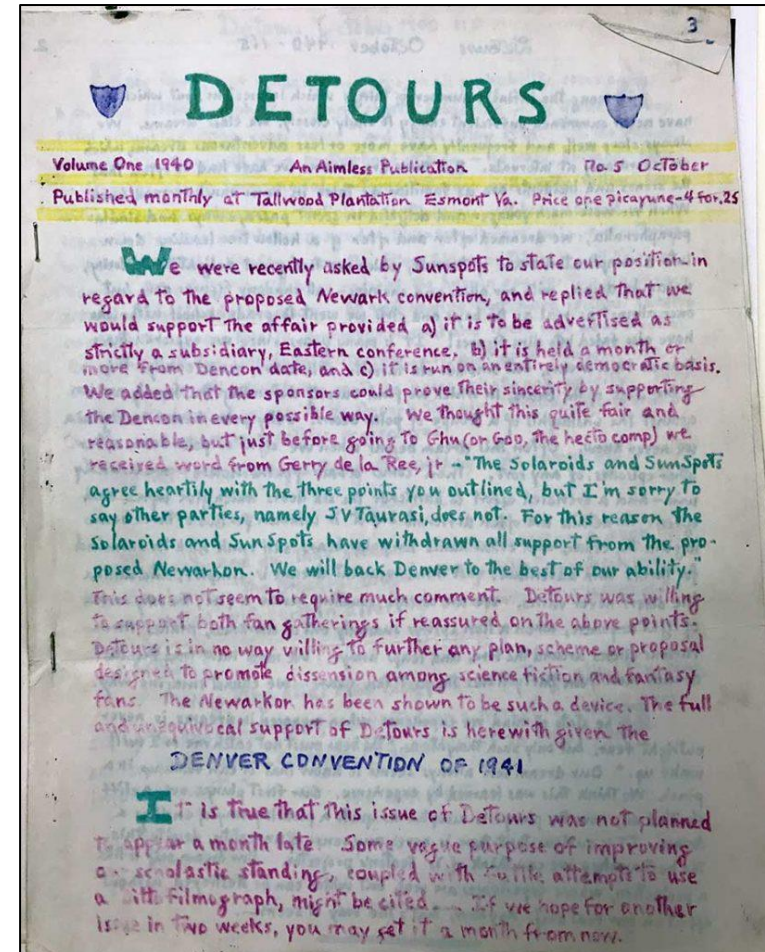 3
DETOURS
Volume One 1940 An Aimless Publication No. 5 October
Published monthly at Tallwood Plantation Esmont Va. Price one picayune-4 for .25
We were recently asked by Sunspots to state our position in
regard to the proposed Newark convention, and replied that we
would support the affair provided a) it is to be advertised as
strictly a subsidiary, Eastern conference, b) it is held a month or
more from Dencon date, and c) it is run on an entirely democratic basis.
We added that the sponsors could prove their sincerity by supporting
the Dencon in every possible way. We thought this quite fair and
reasonable, but just before going to Ghu (or Goo, the hecto comp) we
received word from Gerry de la Ree, jr - "The Solaroids and SunSpots
agree heartily with the three points you outlined, but I'm sorry to
say other parties, namely JV Taurasi, does not. For this reason the
Solaroids and Sun Spots have withdrawn all support from the pro-
posed Newarkon. We will back Denver to the best of our ability."
This does not seem to require much comment. Detours was willing
to support both fan gatherings if reassured on the above points.
Detours is in no way willing to further any plan, scheme or proposal
designed to promote dissension among science fiction and fantasy
fans. The Newarkon has been shown to be such a device. The full
and unequivocal support of Detours is herewith given the
DENVER CONVENTION OF 1941
It is true that this issue of Detours was not planned
to appear a month late. Some vague purpose of improving
our scholastic standing, coupled with futile attempts to use
a filmograph, might be cited. If we hope for another
issue in two weeks, you may get it a month from now.